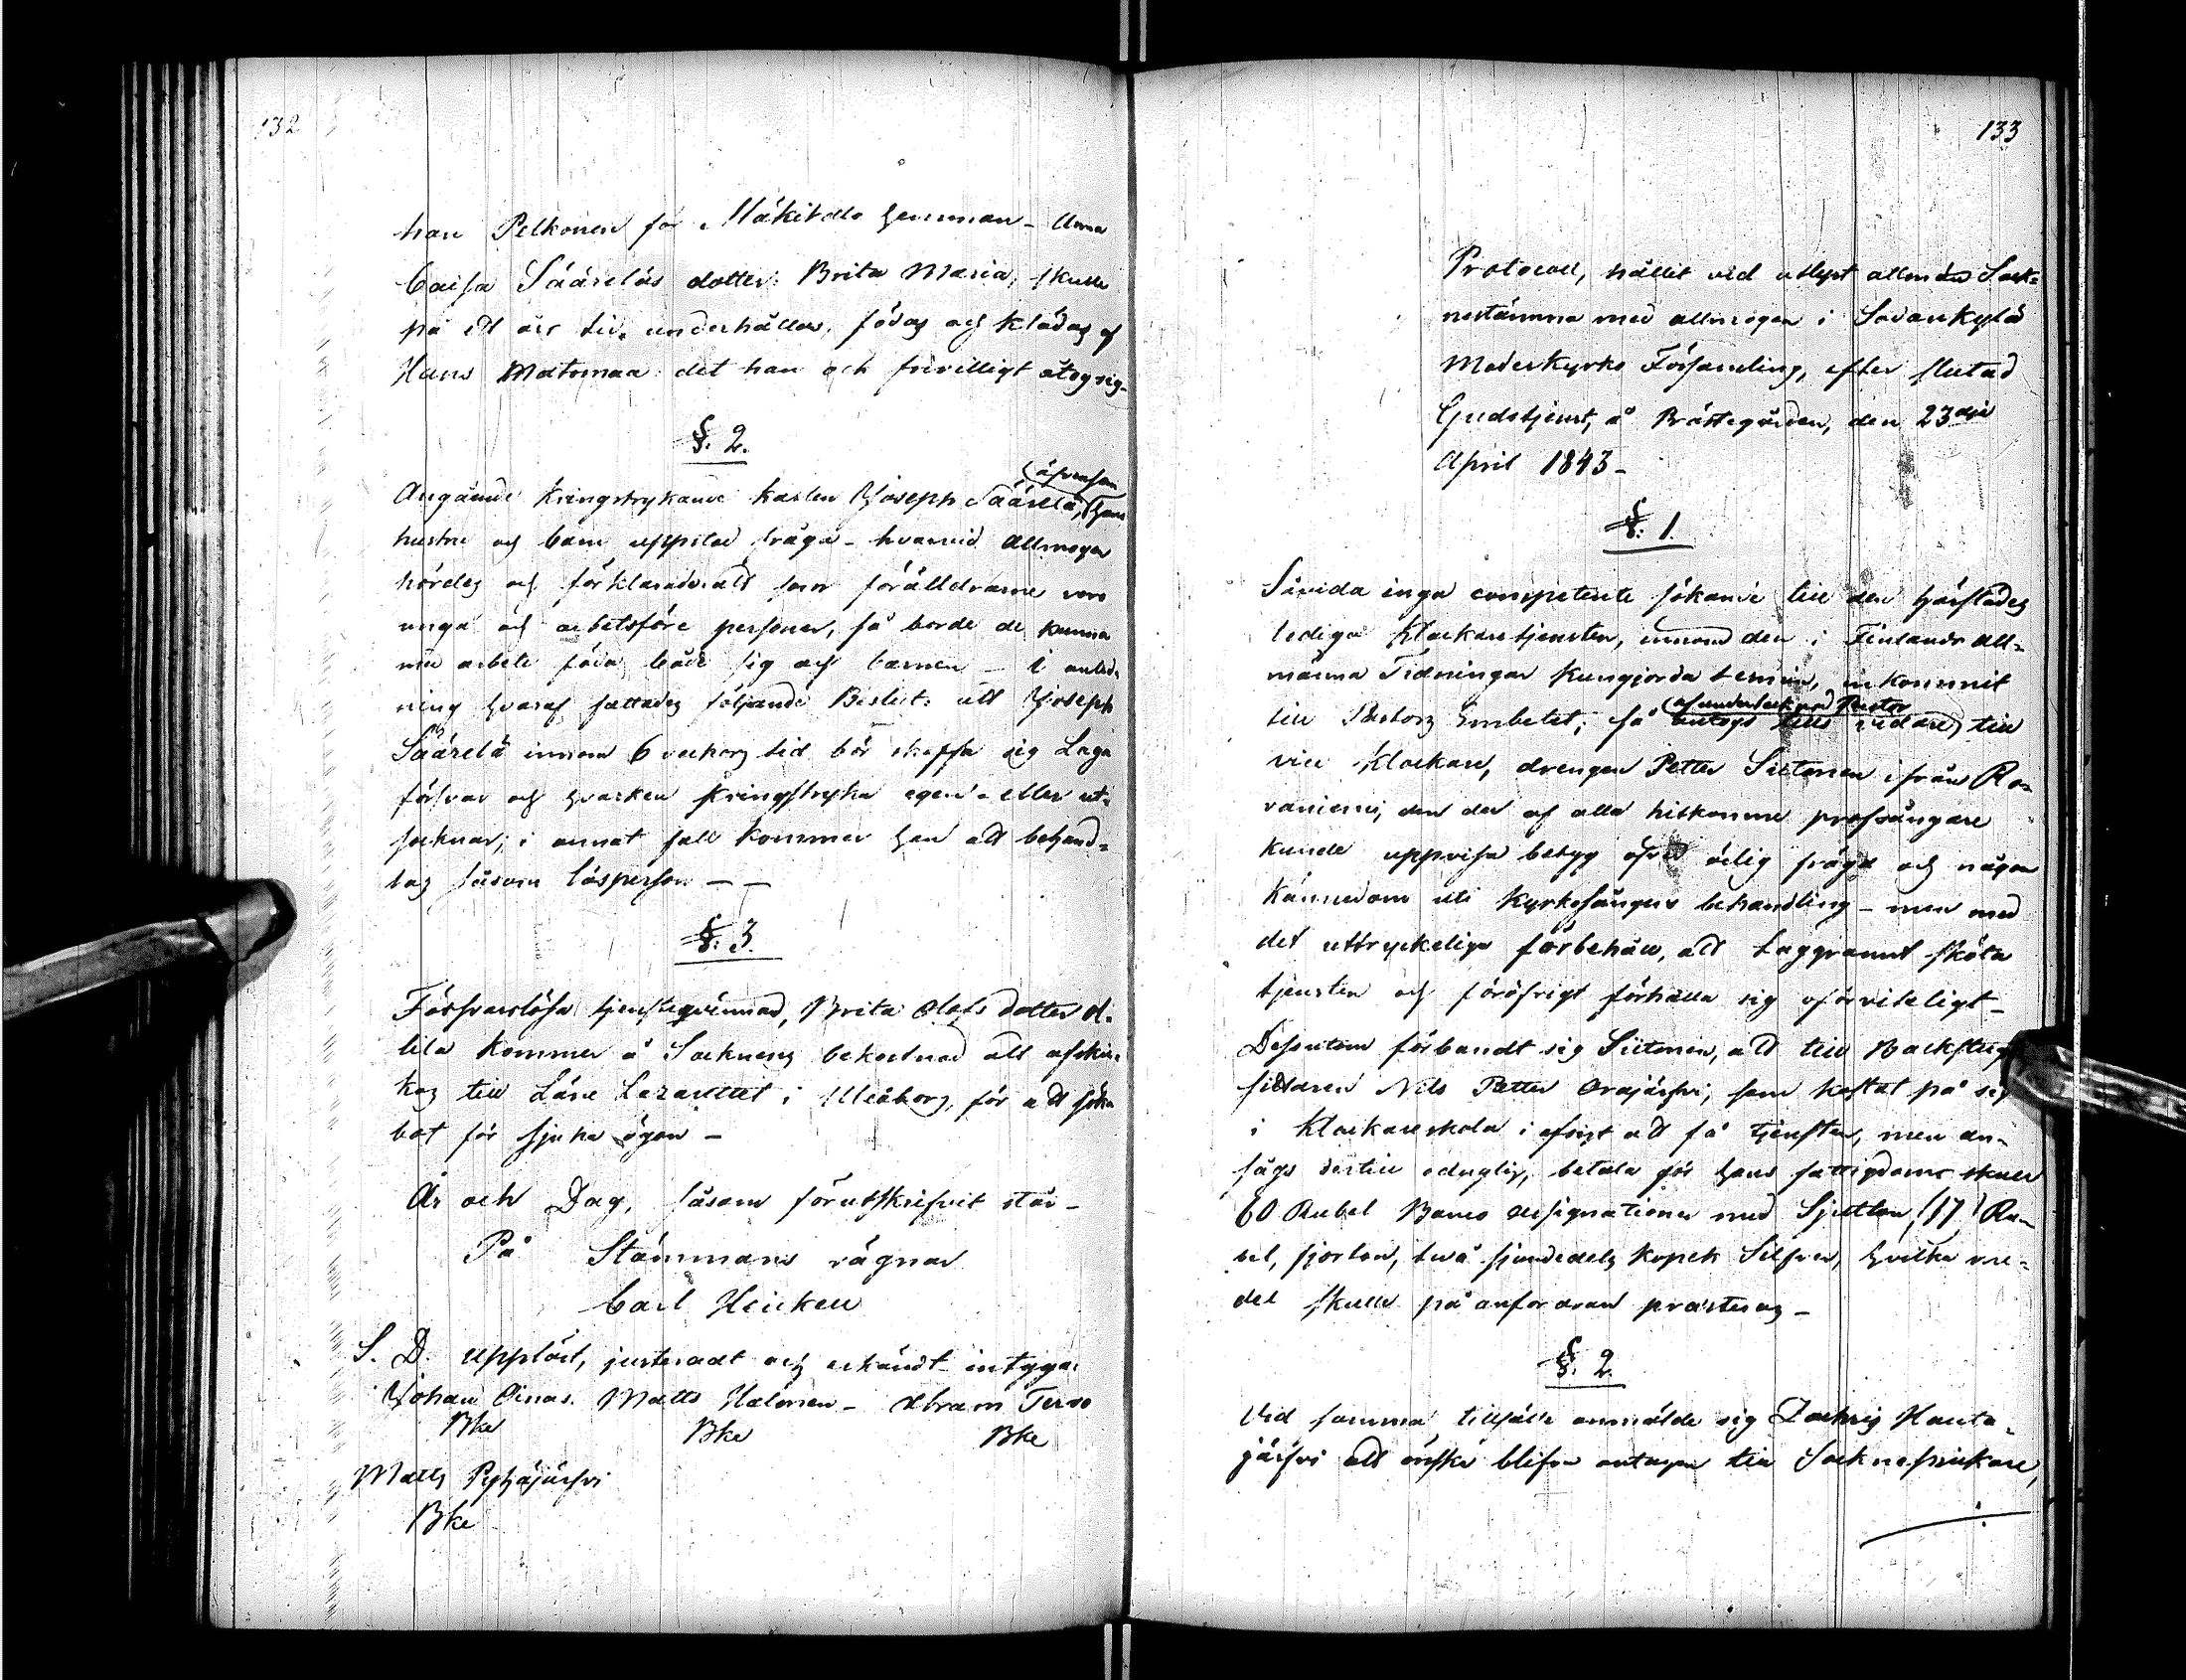 132
han Pelkonen för Mäkitalo hemman - Anna
Caisa Sääreläs dotter: Brita Maria, skulle
på ett års tid underhållas, födas och klädas af
Hans Matomaa: det han och frivilligt åtog sig -
§. 2.
Angående kringstrykande karlen Joseph Säärelä, äfvensom hans
hustru och barn uppstod fråga - hvarvid Allmogen
hördes och förklarade att som föräldrarne voro
unga och arbetsföre personer, så borde de kunna
med arbete föda både sig och barnen - i anled-
ning hvaraf fattades följande Beslut: att Joseph
Säärelä innom 6 veckors tid bör skaffa sig Laga
försvar och hvarken kringstryka egen- eller ut-
socknar; i annat fall kommer han att behand-
las såsom lösperson - -
§. 3.
Försvarslösa tjenstqvinnan, Brita Olofsdotter
kommer å Socknens bekostnad att afskic-
kas till Läns Lazarettet i Uleåborg, för att söka
bot för sjuka ögon -
År och Dag, såsom förutskrifvit står -
På Stämmans vägnar
Carl Heickell
S. D. uppläst, justeradt och erkändt intyga:
Johan Oinas. Matts Halonen - Abram Tervo
Bke Bke Bke
Matts Pyhäjärfvi
Bke
133
Protocoll, hållit vid utlyst allmän Sock-
nestämma med allmogen i Sodankylä
Moderkyrko Församling, efter slutad
Gudstjenst, å Prästegården, den 23dje
April 1843 -
§. 1.
Såvida inga competente sökande till den härstädes
lediga Klockaretjensten, innom den i Finlands All-
männa Tidningar kungjorda termin, inkommit
till Pastors Embetet; så antogs af undertecknad Pastor till
vice Klockare, drengen Petter Siitonen ifrån Ro-
vaniemi, den der af alla hitkomne profsångare
kunde uppvisa betyg öfver ärlig frägd och någon
kännedom uti kyrkosångens behandling - men med
det uttryckeliga förbehåll, att taggrannt sköta
tjensten och föröfrigt förhålla sig oförviteligt -
Dessutom förbandt sig Siitonen, att till Backstugu
sittaren Nils Petter Orajärfvi, som kostat på sig
i Klockareskola i afsigt att få tjensten, men an-
sågs dertill oduglig, betala för hans fattigdoms skull
60 Rubel Banco Assignationer med Sjutton, (17) Ru-
bel, fjorton, två sjundedels kopek Silfver, hvilka me-
del skulle på anfordran presteras -
§. 2.
Vid samma tillfälle anmälde sig Zachris Hauta-
järfvi att önska blifva antagen till Socknesnickare,